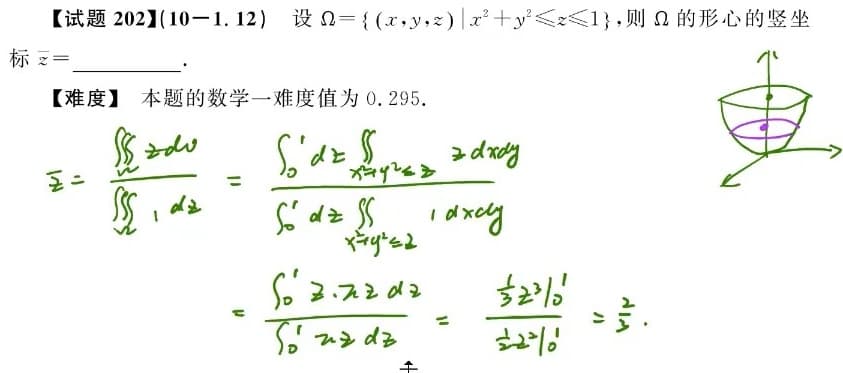 【试题 202】(10-1.12) 设 Ω={(x,y,z)|x²+y²≤z≤1},则 Ω 的形心的竖坐
标 z̄=________.
【难度】 本题的数学一难度值为 0.295.
z̄ = ∭_Ω z dv / ∭_Ω 1 dz = ∫₀¹ dz ∬_{x²+y²≤z} z dxdy / ∫₀¹ dz ∬_{x²+y²≤z} 1 dxdy
= ∫₀¹ z·πz dz / ∫₀¹ πz dz = ⅓z³|₀¹ / ½z²|₀¹ = 2/3.